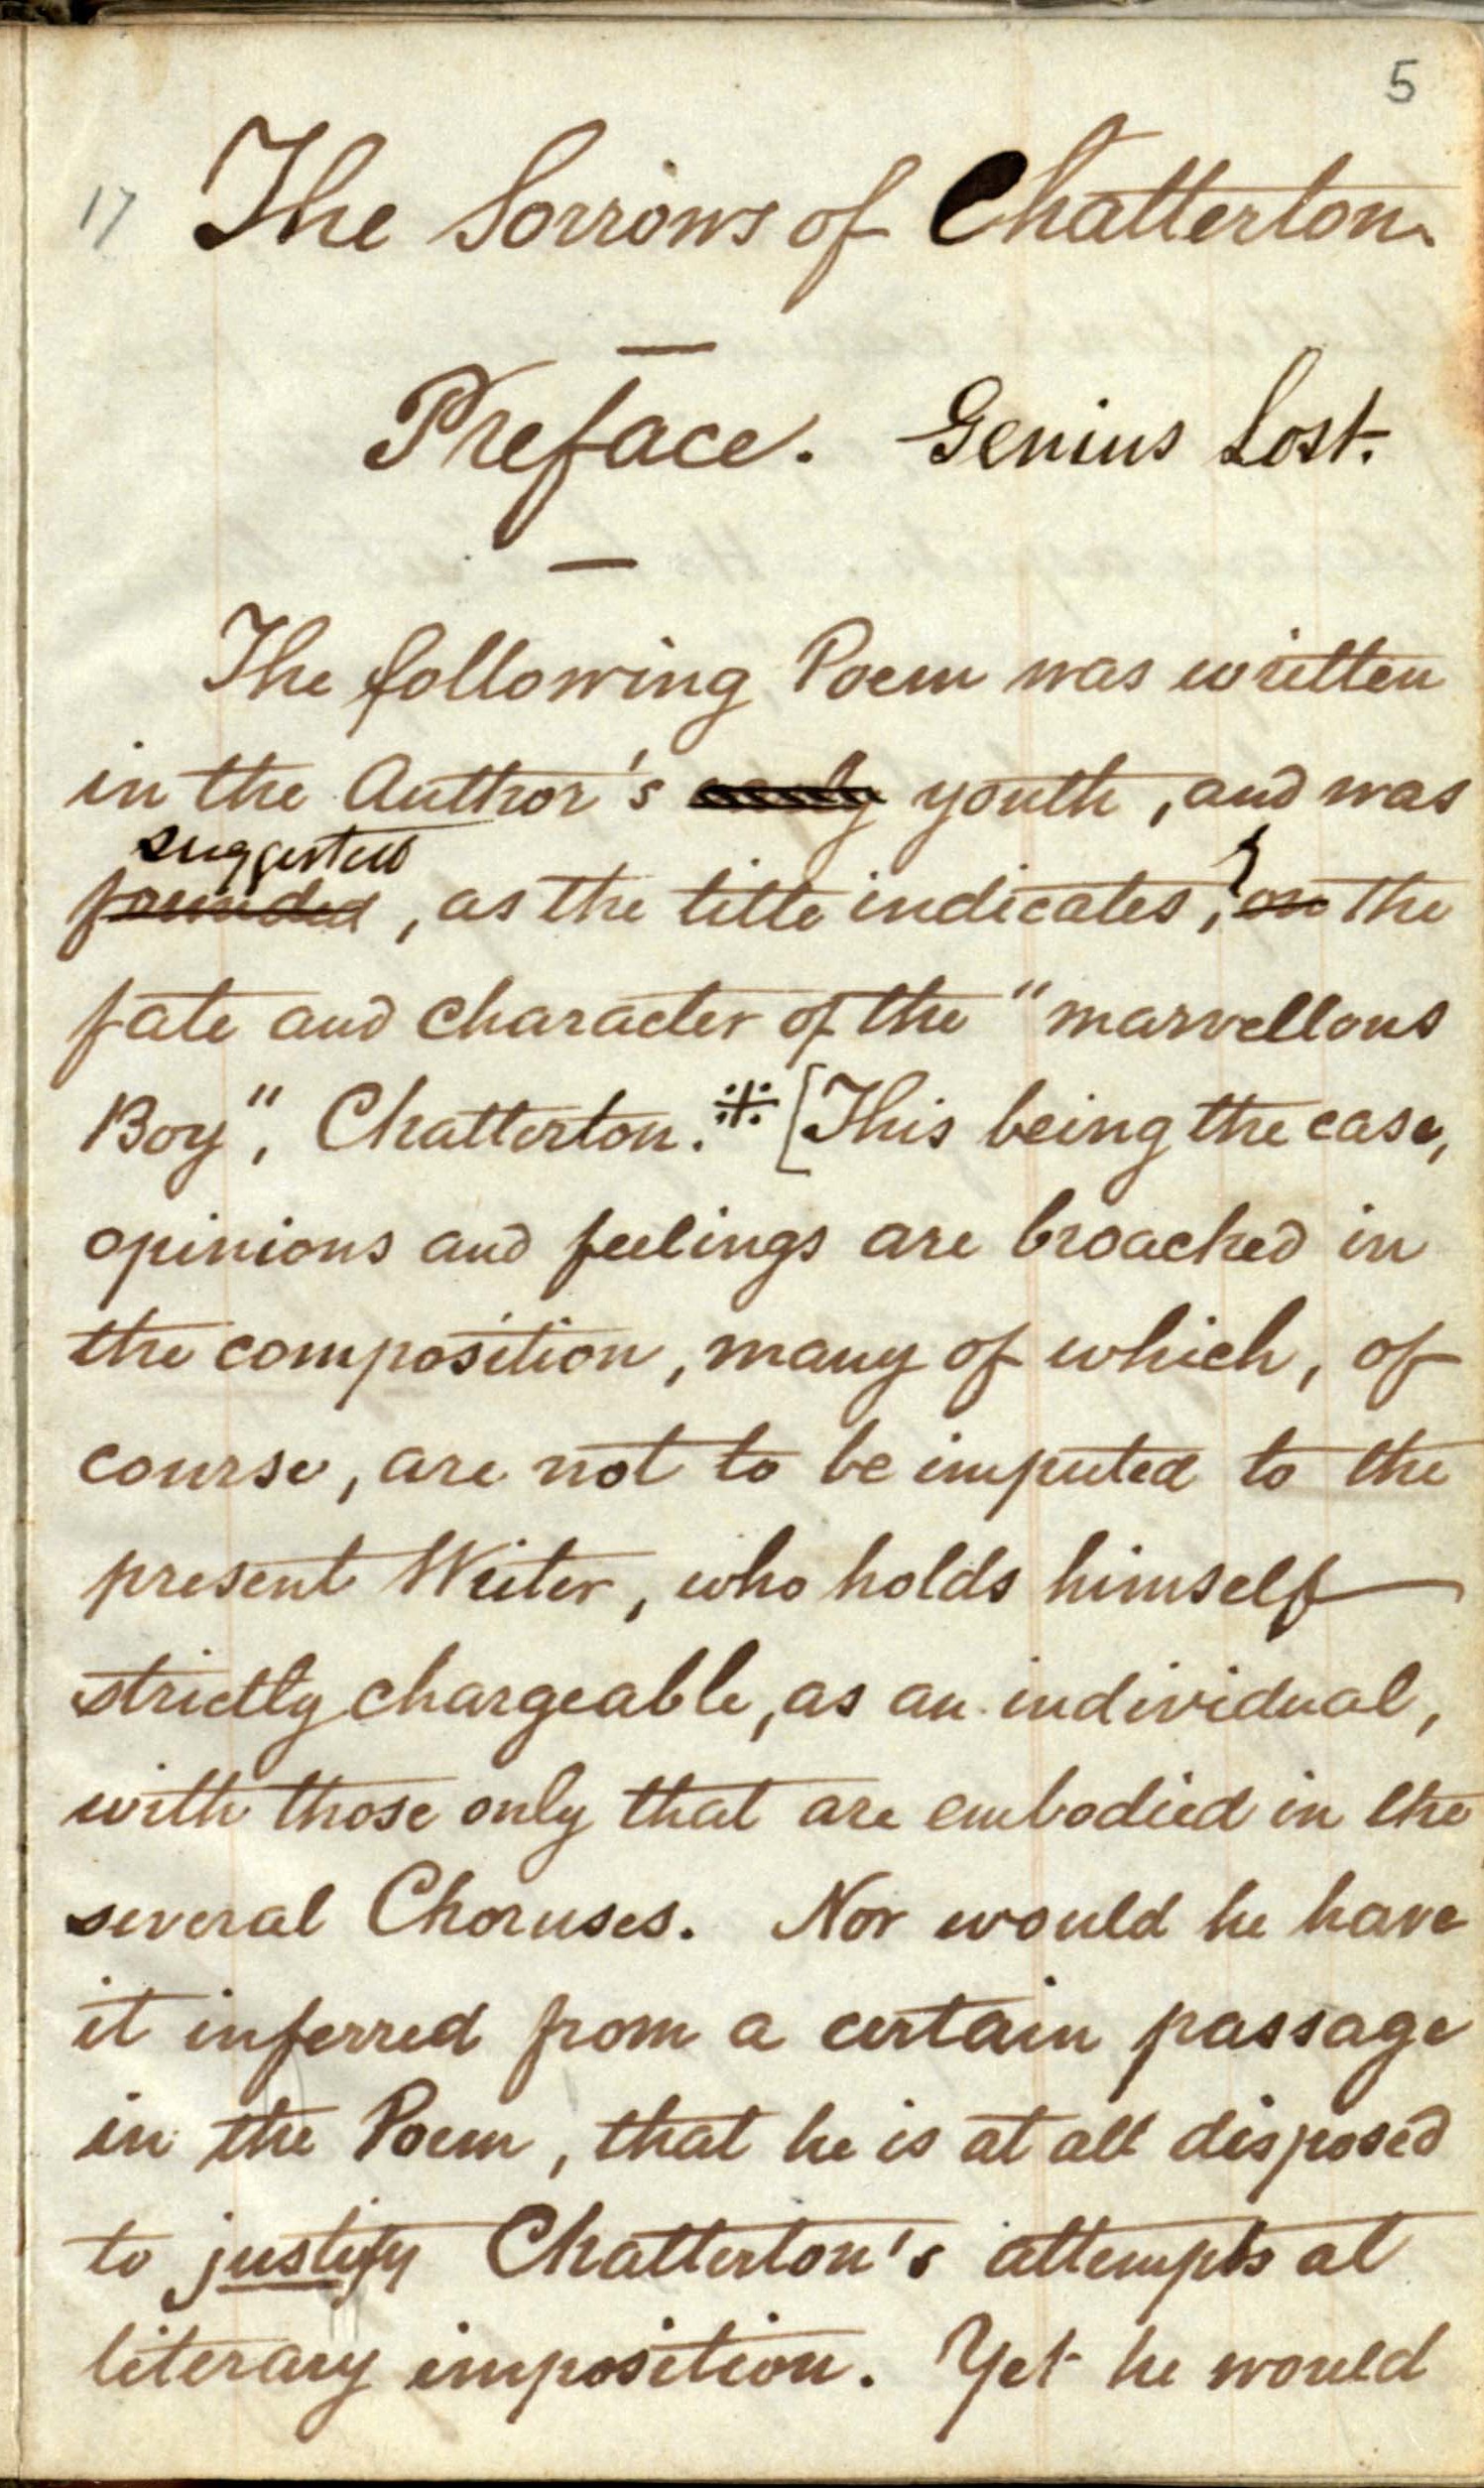 5
17 The Sorrows of Chatterton.
Preface. Genius Lost.
The following Poem was written
in the Author's early youth, and was
suggested
founded, as the title indicates, on the
fate and character of the "marvellous
Boy", Chatterton.※ [This being the case,
opinions and feelings are broached in
the composition, many of which, of
course, are not to be imputed to the
present Writer, who holds himself
strictly chargeable, as an individual,
with those only that are embodied in the
several Choruses. Nor would he have
it inferred from a certain passage
in the Poem, that he is at all disposed
to justify Chatterton's attempts at
literary imposition. Yet he would